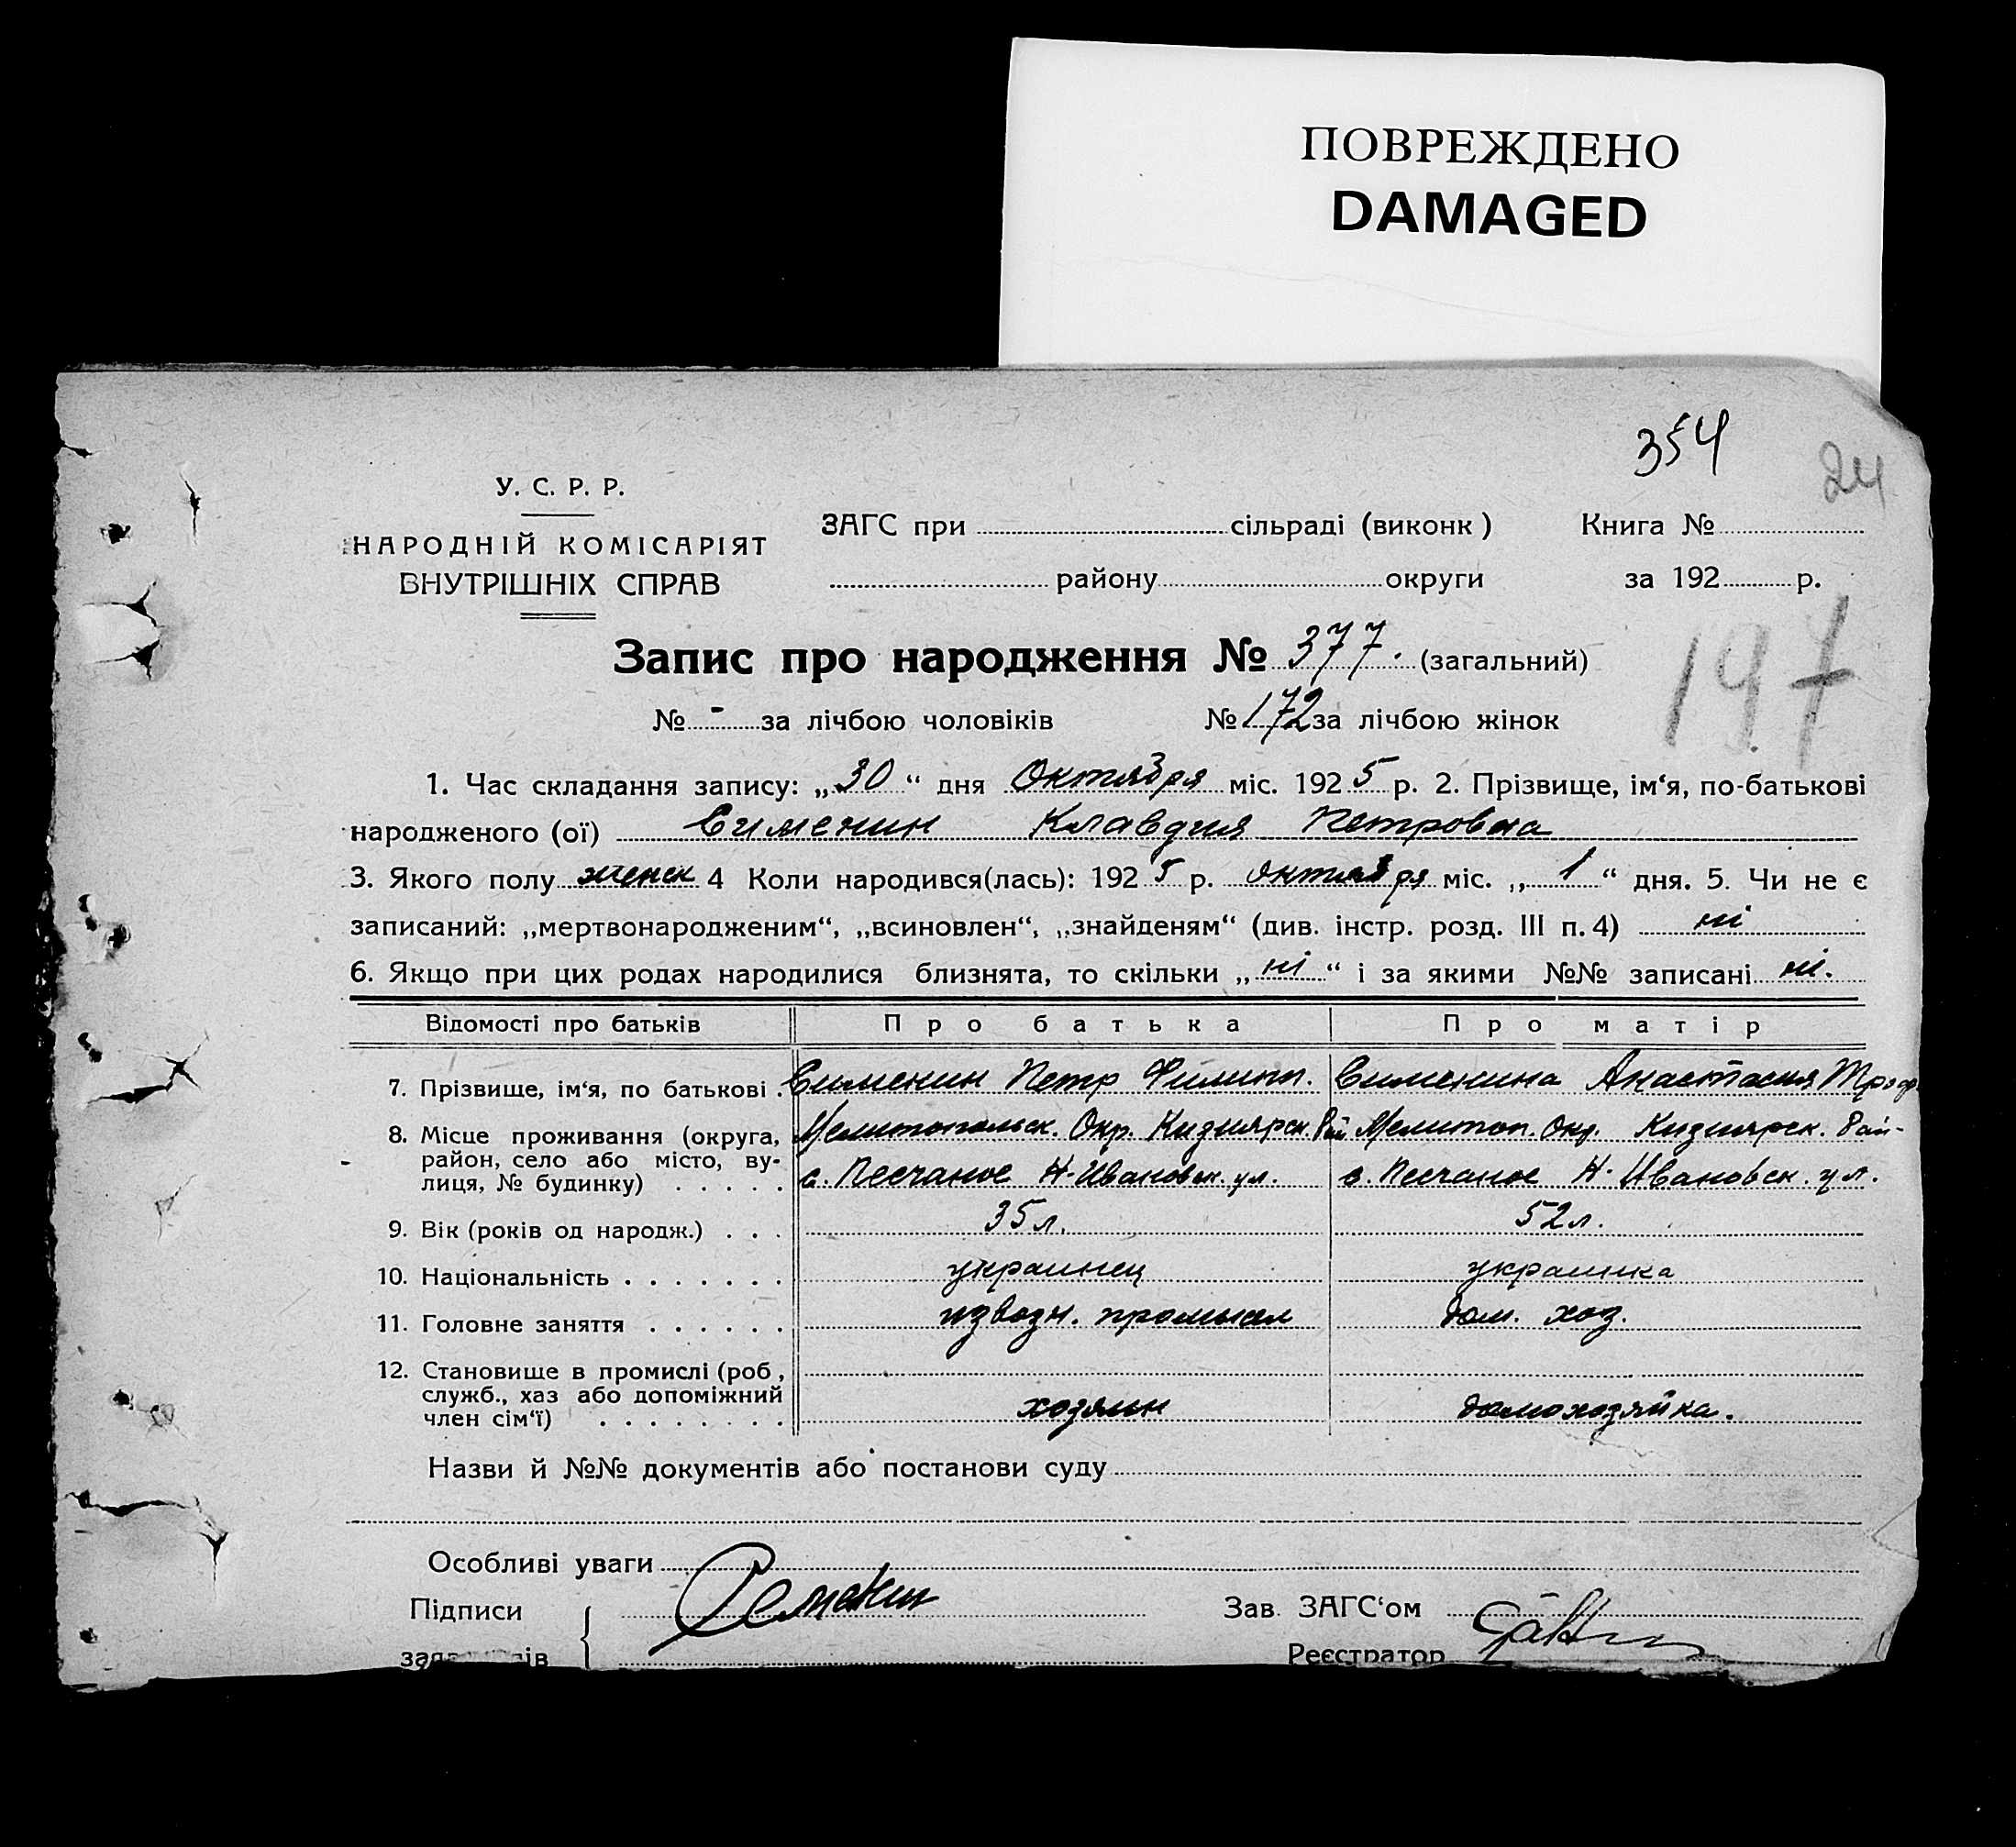 ПОВРЕЖДЕНО
DAMAGED
354
24
У. С. Р. Р.
НАРОДНІЙ КОМІСАРІЯТ
ВНУТРІШНІХ СПРАВ
ЗАГС при сільраді (виконк)
Книга №
району округи
за 192 р.
197
Запис про народження № 377. (загальний)
№ - за лічбою чоловіків № 172 за лічбою жінок
1. Час складання запису: „30“ дня Октября міс. 1925 р. 2. Прізвище, ім‘я, по-батькові
народженого (ої) Сименин Клавдия Петровна
3. Якого полу женск 4 Коли народився(лась): 1925 р. октября міс. „1“ дня. 5. Чи не є
записаний: „мертвонародженим“, „всиновлен“, „знайденям“ (див. інстр. розд. III п. 4) ні
6. Якщо при цих родах народилися близнята, то скільки „ні“ і за якими №№ записані ні.
Відомості про батьків Про батька Про матір
7. Прізвище, ім‘я, по батькові . Сименин Петр Филипп. Сименина Анастасия Троф.
8. Місце проживання (округа, Мелитопольск. Окр. Кизиярск. Рай Мелитоп. Окр. Кизиярск. Рай-
район, село або місто, ву-
лиця, № будинку) . . . . . с. Песчаное Н-Ивановск. ул. с. Песчаное Н-Ивановск. ул.
9. Вік (років од народж.) . . . 35 л. 52 л.
10. Національність . . . . . . . украинец украинка
11. Головне заняття . . . . . . извозн. промысел дом. хоз.
12. Становище в промислі (роб,
служб., хаз або допоміжний
член сім‘ї) . . . . . . . . хозяин домохозяйка.
Назви й №№ документів або постанови суду
Особливі уваги
Підписи Семенин Зав. ЗАГС‘ом
Реєстратор